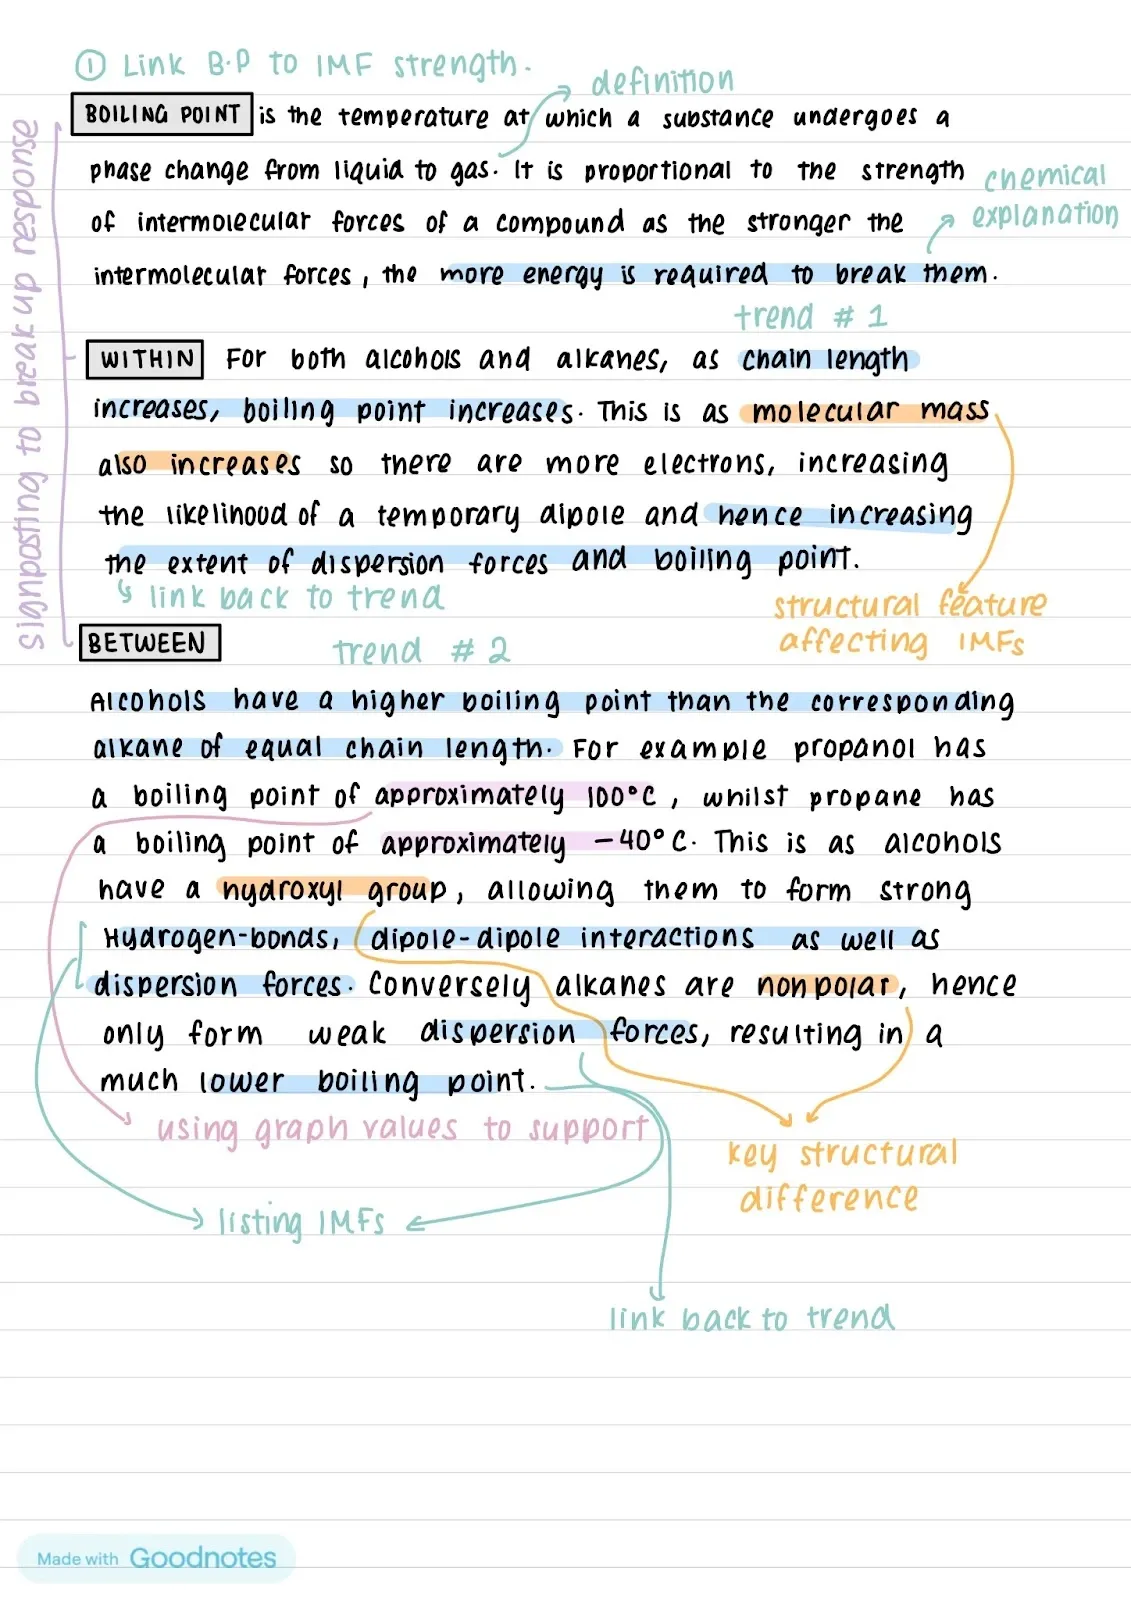 ① Link B.P to IMF strength.
definition
BOILING POINT is the temperature at which a substance undergoes a
phase change from liquid to gas. It is proportional to the strength
chemical
explanation
of intermolecular forces of a compound as the stronger the
intermolecular forces, the more energy is required to break them.
signposting to break up response
trend # 1
WITHIN For both alcohols and alkanes, as chain length
increases, boiling point increases. This is as molecular mass
also increases so there are more electrons, increasing
the likelihood of a temporary dipole and hence increasing
the extent of dispersion forces and boiling point.
link back to trend
structural feature
affecting IMFs
BETWEEN
trend # 2
Alcohols have a higher boiling point than the corresponding
alkane of equal chain length. For example propanol has
a boiling point of approximately 100°C, whilst propane has
a boiling point of approximately -40°C. This is as alcohols
have a hydroxyl group, allowing them to form strong
Hydrogen-bonds, dipole-dipole interactions as well as
dispersion forces. Conversely alkanes are nonpolar, hence
only form weak dispersion forces, resulting in a
much lower boiling point.
using graph values to support
key structural
difference
listing IMFs
link back to trend
Made with Goodnotes